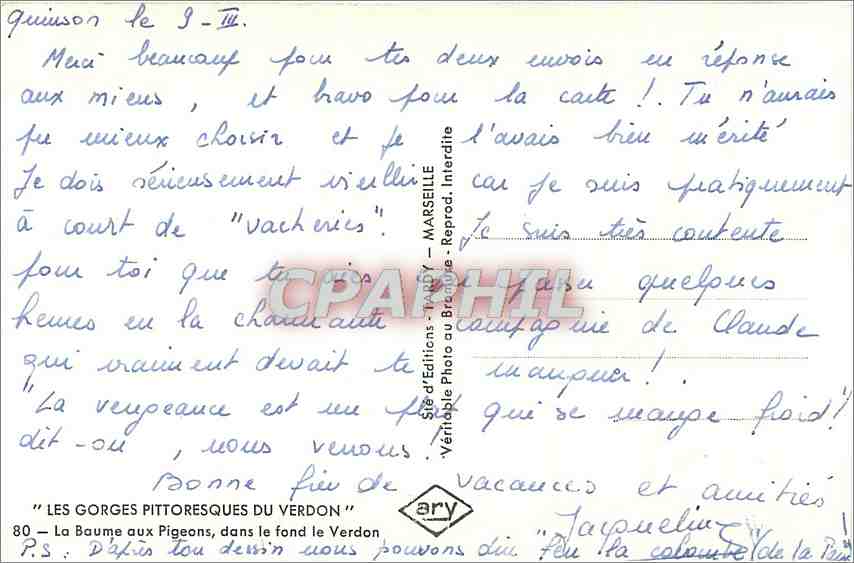 Quinson le 9-III.
Merci beaucoup pour tes deux envois en réponse
aux miens, et bravo pour la carte !. Tu n'aurais
pu mieux choisir et je l'avais bien mérité
Je dois sérieusement vieillir car je suis pratiquement
à court de "vacheries". Je suis très contente
pour toi que tu aies pu passer quelques
heures en la charmante compagnie de Claude
qui vraiment devait te manquer !.
"La vengeance est un plat qui se mange froid"!
dit-on, nous verrons !
Bonne fin de vacances et amitiés
Jacqueline
P.S : D'après ton dessin nous pouvons dire "Feu la colombe de la Paix" !
"LES GORGES PITTORESQUES DU VERDON"
80 — La Baume aux Pigeons, dans le fond le Verdon
Sté d'Editions - TARDY — MARSEILLE
Véritable Photo au Bromure - Reprod. Interdite
ary
CPAPHIL